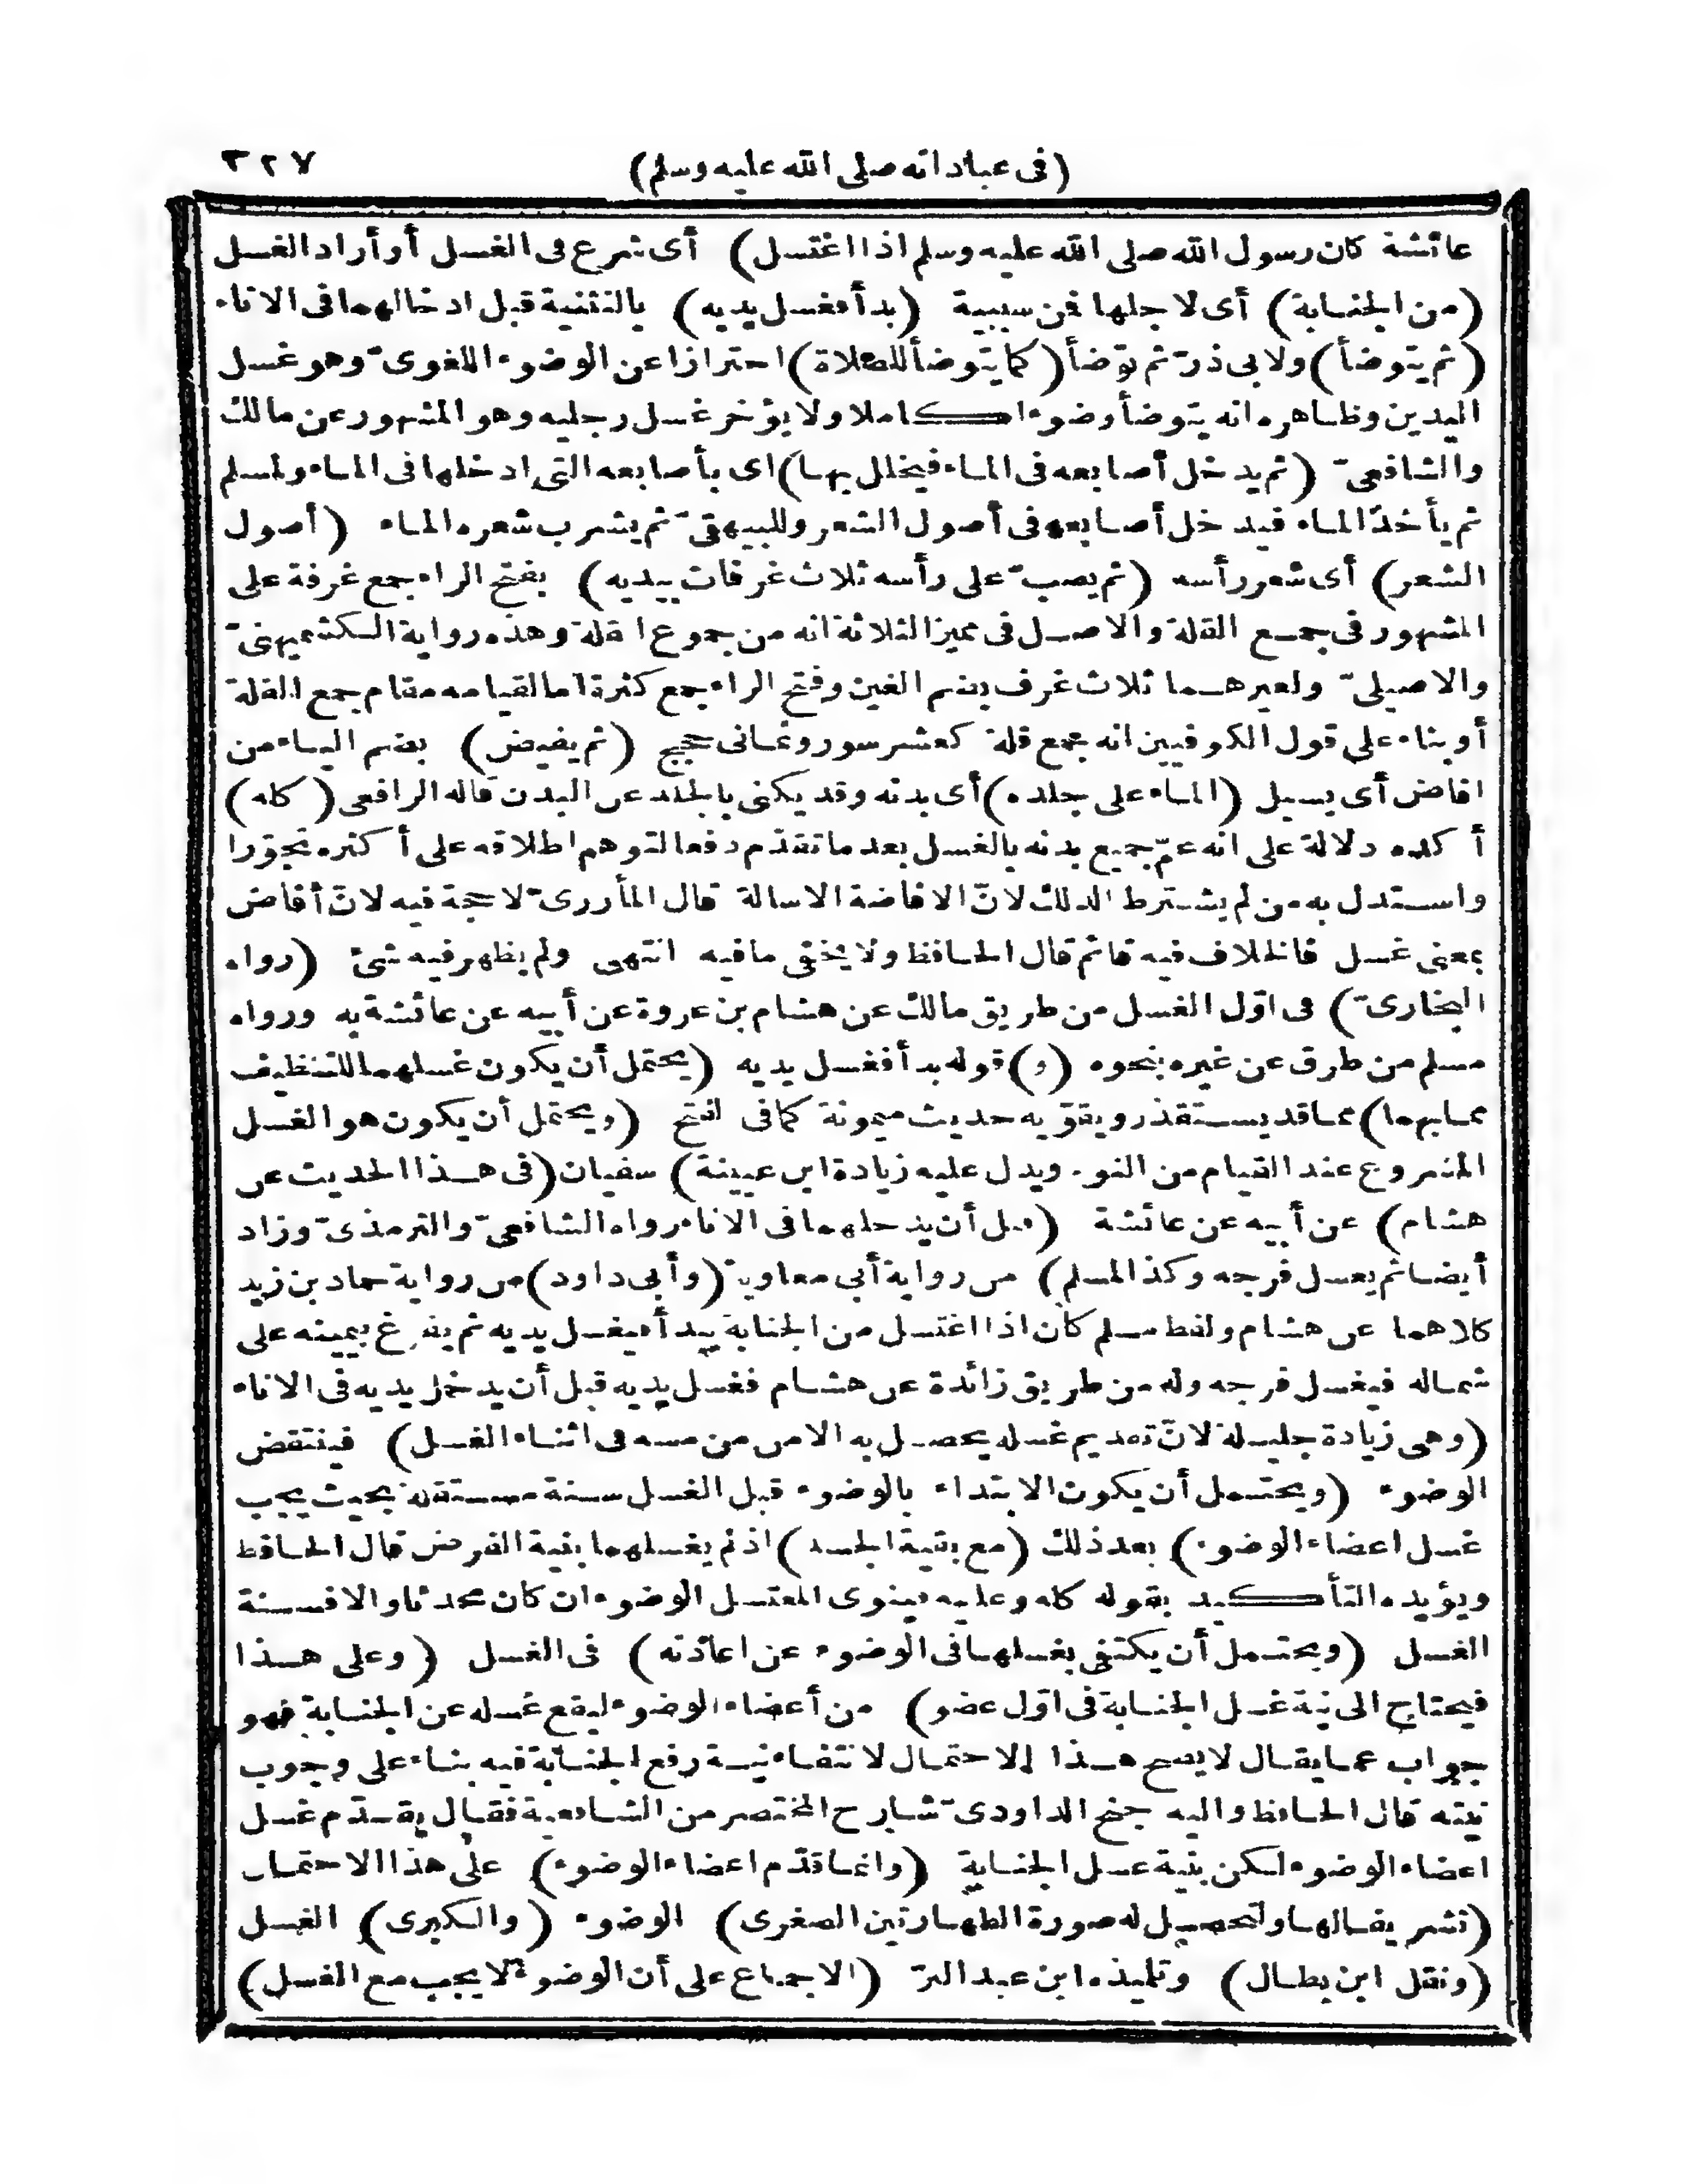 (فى عباداته صلى الله عليه وسلم) ٣٢٧
عائشة كان رسول الله صلى الله عليه وسلم اذا اغتسل) أى شرع فى الغسل أو أراد الغسل
(من الجنابة) أى لاجلها فمن سببية (بدأ فغسل يديه) بالتثنية قبل ادخالهما فى الاناء
(ثم يتوضأ) ولابى ذرّ ثم توّضأ (كما يتوضأ للصلاة) احترازا عن الوضوء اللغوىّ وهو غسل
اليدين وظاهره انه يتوضأ وضوءا كاملا ولا يؤخر غسل رجليه وهو المشهور عن مالك
والشافعىّ (ثم يدخل أصابعه فى الماء فيخلل بها) اى بأصابعه التى ادخلها فى الماء ولمسلم
ثم يأخذ الماء فيدخل أصابعه فى أصول الشعر وللبيهقىّ ثم يشرب شعره الماء (أصول
الشعر) أى شعر رأسه (ثم يصبّ على رأسه ثلاث غرفات بيديه) بفتح الراء جمع غرفة على
المشهور فى جمع القلة والاصل فى مميز الثلاثة انه من جموع القلة وهذه رواية الكشميهنىّ
والاصيلىّ ولغيرهما ثلاث غرف بضم الغين وفتح الراء جمع كثرة اما لقيامه مقام جمع القلة
أو بناء على قول الكوفيين انه جمع قلة كعشر سور وثمانى حجج (ثم يفيض) بضم الياء من
افاض أى يسيل (الماء على جلده) أى بدنه وقد يكنى بالجلد عن البدن قاله الرافعى (كله)
أكده دلالة على انه عمّ جميع بدنه بالغسل بعد ما تقدّم دفعا لتوهم اطلاقه على أكثره تجوّزا
واستدل به من لم يشترط الدلك لانّ الافاضة الاسالة قال المأزرىّ لا حجة فيه لانّ أفاض
بمعنى غسل فالخلاف فيه قائم قال الحافظ ولا يخفى ما فيه انتهى ولم يظهر فيه شئ (رواه
البخارىّ) فى اوّل الغسل من طريق مالك عن هشام بن عروة عن أبيه عن عائشة به ورواه
مسلم من طرق عن غيره بنحوه (و) قوله بدأ فغسل يديه (يحتمل أن يكون غسلهما للتنظيف
مما بهما) مما قد يستقذر ويقوّيه حديث ميمونة كما فى الفتح (ويحتمل أن يكون هو الغسل
المشروع عند القيام من النوم ويدل عليه زيادة ابن عيينة) سفيان (فى هذا الحديث عن
هشام) عن أبيه عن عائشة (قبل أن يدخلهما فى الاناء رواه الشافعىّ والترمذىّ وزاد
أيضا ثم يغسل فرجه وكذا لمسلم) من رواية أبى معاوية (وأبى داود) من رواية حماد بن زيد
كلاهما عن هشام ولفظ مسلم كان اذا اغتسل من الجنابة يبدأ فيغسل يديه ثم يفرغ بيمينه على
شماله فيغسل فرجه وله من طريق زائدة عن هشام فغسل يديه قبل أن يدخل يديه فى الاناء
(وهى زيادة جليلة لانّ تقديم غسله يحصل به الامن من مسه فى اثناء الغسل) فينتقض
الوضوء (ويحتمل أن يكون الابتداء بالوضوء قبل الغسل سنة مستقلة بحيث يجب
غسل اعضاء الوضوء) بعد ذلك (مع بقية الجسد) اذ لم يغسلهما بنية الفرض قال الحافظ
ويؤيده التأكيد بقوله كله وعليه فينوى المغتسل الوضوء ان كان محدثا والا فسنة
الغسل (ويحتمل أن يكتفى بغسلها فى الوضوء عن اعادته) فى الغسل (وعلى هذا
فيحتاج الى نية غسل الجنابة فى اوّل عضو) من أعضاء الوضوء ليقع غسله عن الجنابة فهو
جواب عما يقال لا يصح هذا الاحتمال لانتفاء نية رفع الجنابة فيه بناء على وجوب
نيته قال الحافظ واليه جنح الداودىّ شارح المختصر من الشافعية فقال يقدّم غسل
اعضاء الوضوء لكن بنية غسل الجنابة (وانما قدّم اعضاء الوضوء) على هذا الاحتمال
(تشريفا لها ولتحصيل له صورة الطهارتين الصغرى) الوضوء (والكبرى) الغسل
(ونقل ابن بطال) وتلميذه ابن عبد البرّ (الاجماع على أن الوضوء لا يجب مع الغسل)